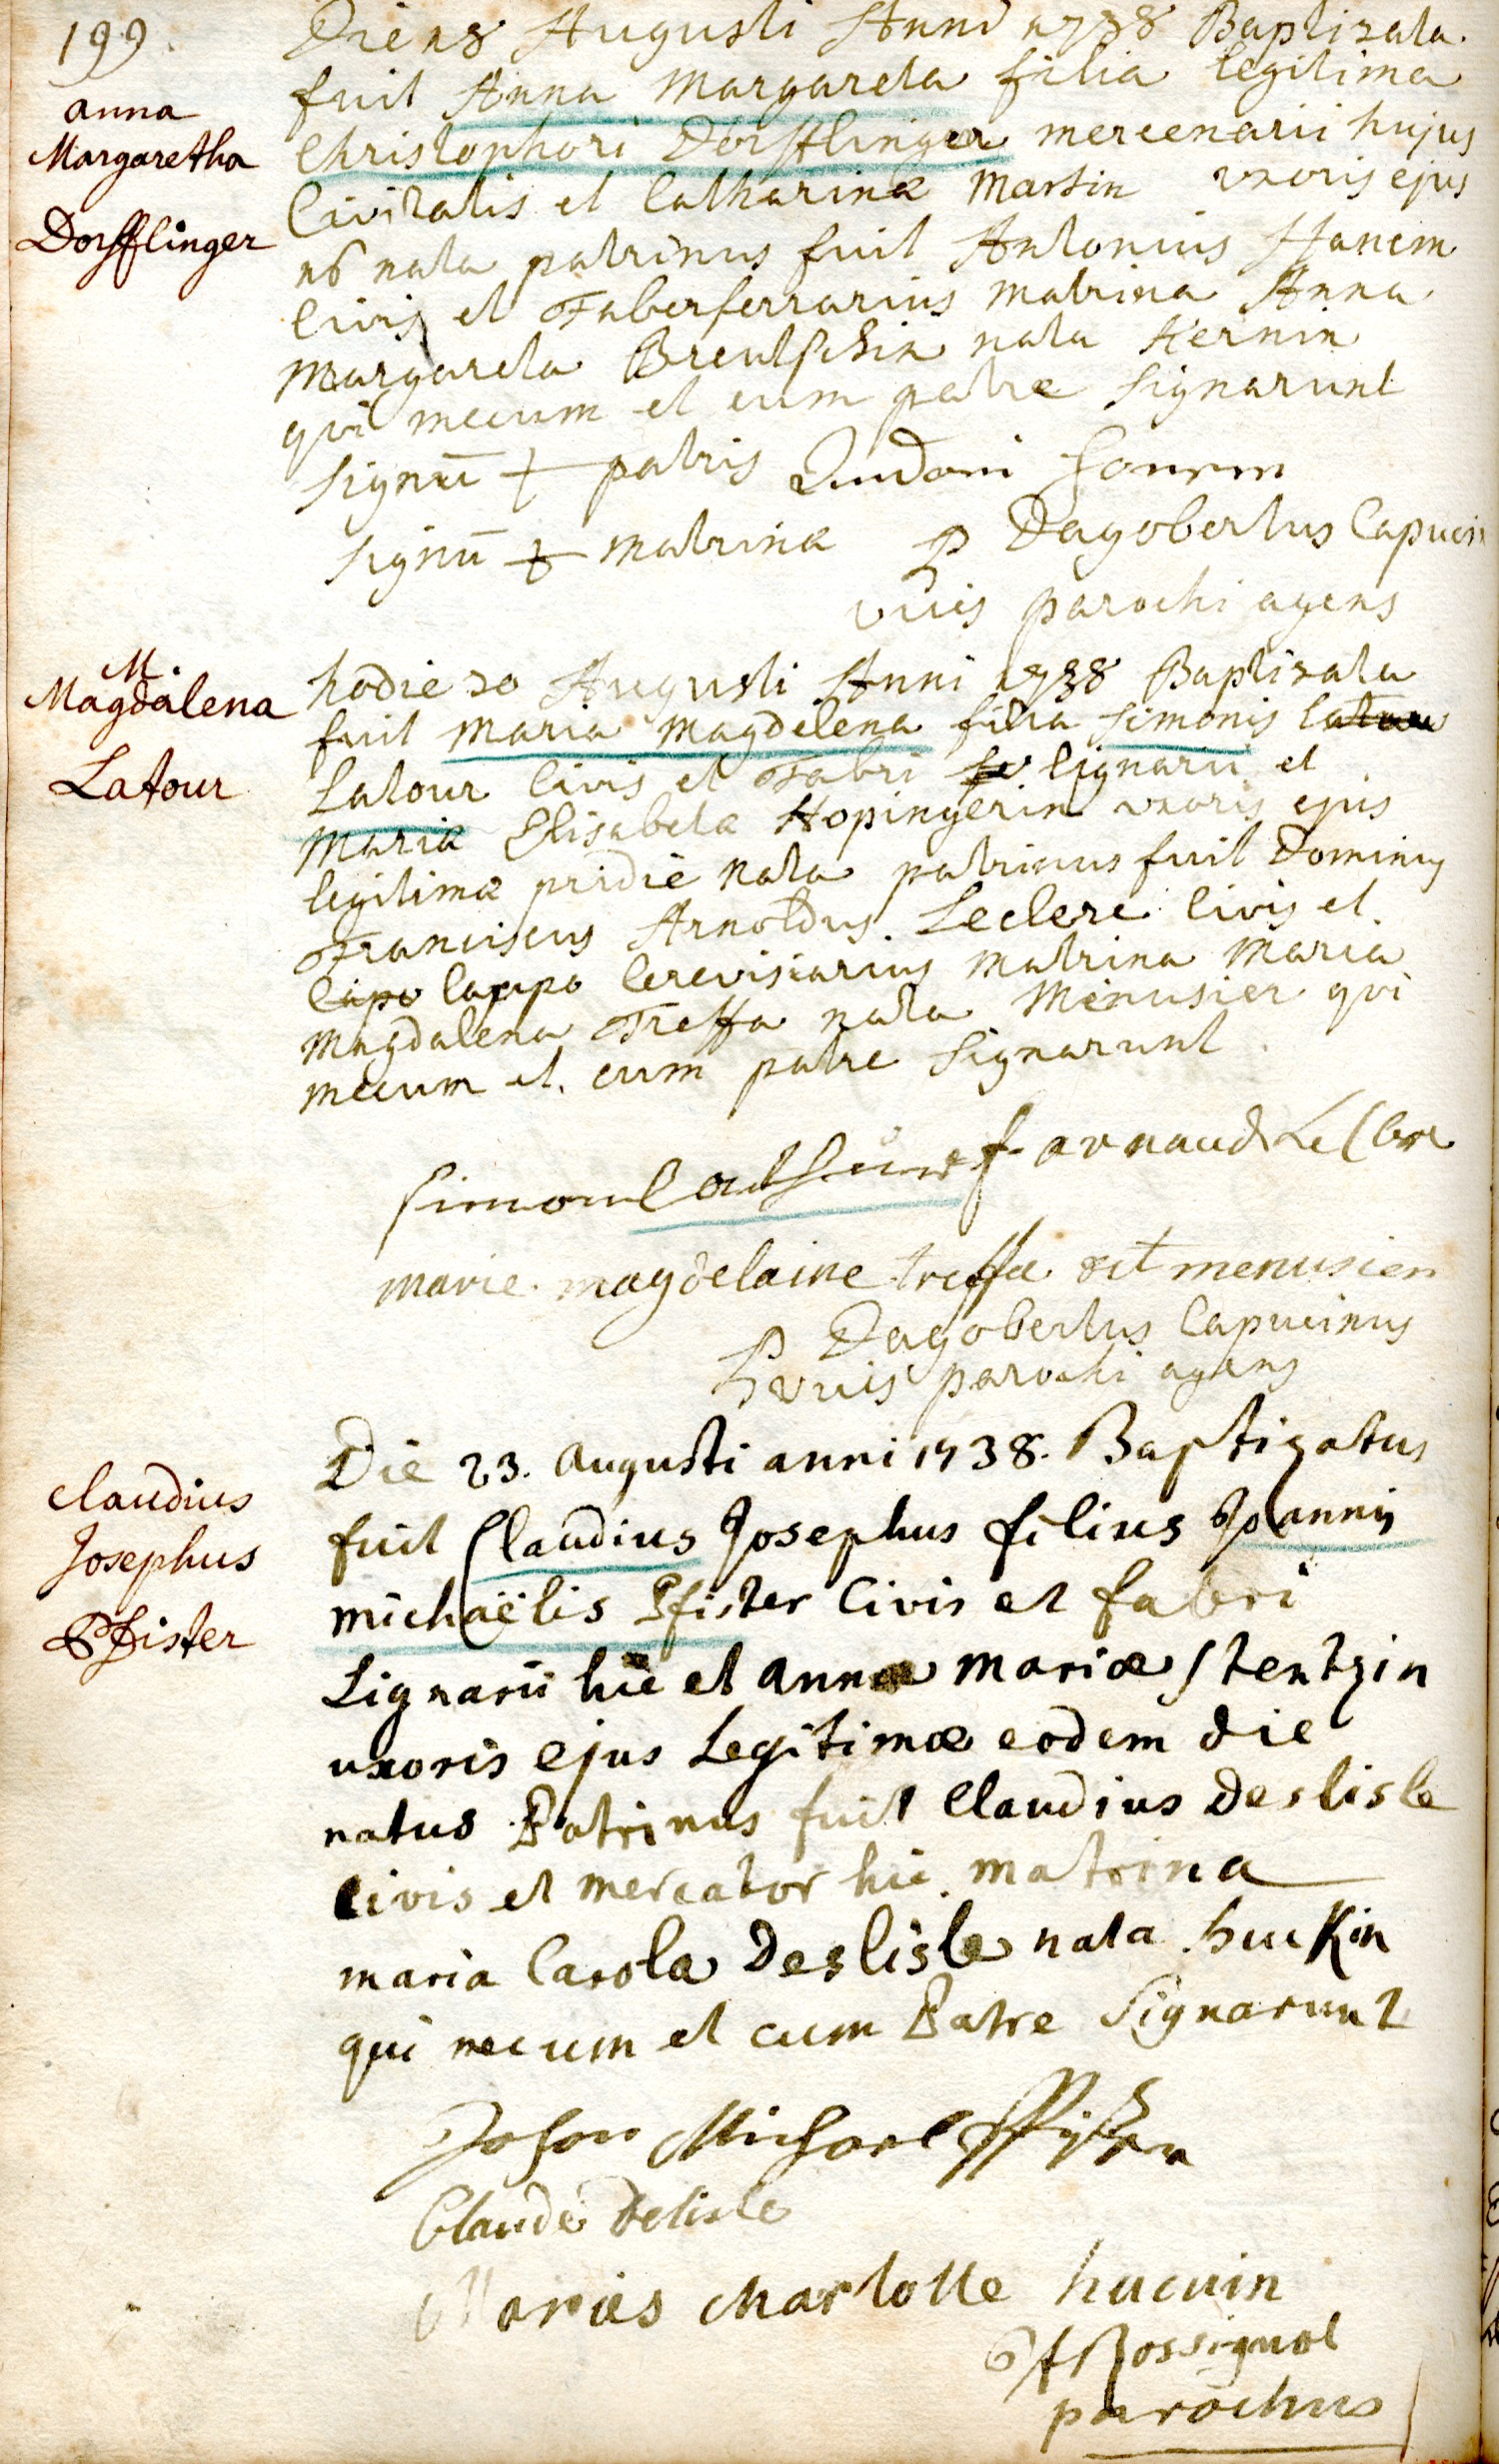 199.
Die 18 Augusti Anni 1738 Baptizata
fuit Anna Margareta filia legitima
Christophori Dörfflinger mercenarii hujus
Civitatis et Catharinæ Martin uxoris ejus
16 nata patrinus fuit Antonius Hanem
Civis et Faberferrarius matrina Anna
Margareta Breutschin nata Kernin
qui mecum et cum patre signarunt
signū + patris
signū + matrinæ P Dagobertus Capucin
vices parochi agens
anna
Margaretha
Dorfflinger
hodie 20 Augusti Anni 1738 Baptizata
fuit Maria Magdelena filia Simonis Latour
Latour Civis et Fabri lignarii et
Mariæ Elisabetæ Hopingerin uxoris ejus
legitimæ pridie nata patrinus fuit Dominus
Franciscus Arnoldus Leclere Civis et
Capo Caupo Cerevisiarius matrina Maria
Magdalena Treffa nata Menusier qui
mecum et cum patre signarunt
M.
Magdalena
Latour
Simon f. arnaud Le Clere
marie magdelaine treffa det menusien
P Dagobertus Capucinus
vices parochi agens
Die 23. Augusti anni 1738. Baptizatus
fuit Claudius Josephus filius Joannis
michaëlis Pfister Civis et fabri
Lignarii hic et annæ mariæ Stentzin
uxoris ejus Legitimæ eodem die
natus Patrinus fuit Claudius Deslisle
civis et mercator hic. matrina
maria Carola Deslisle nata huckin
qui mecum et cum Patre signarunt
Claudius
Josephus
Pfister
Johan Michael Pfister
Claude Delisle
Maries charlotte hucuin
Rossignol
parochus